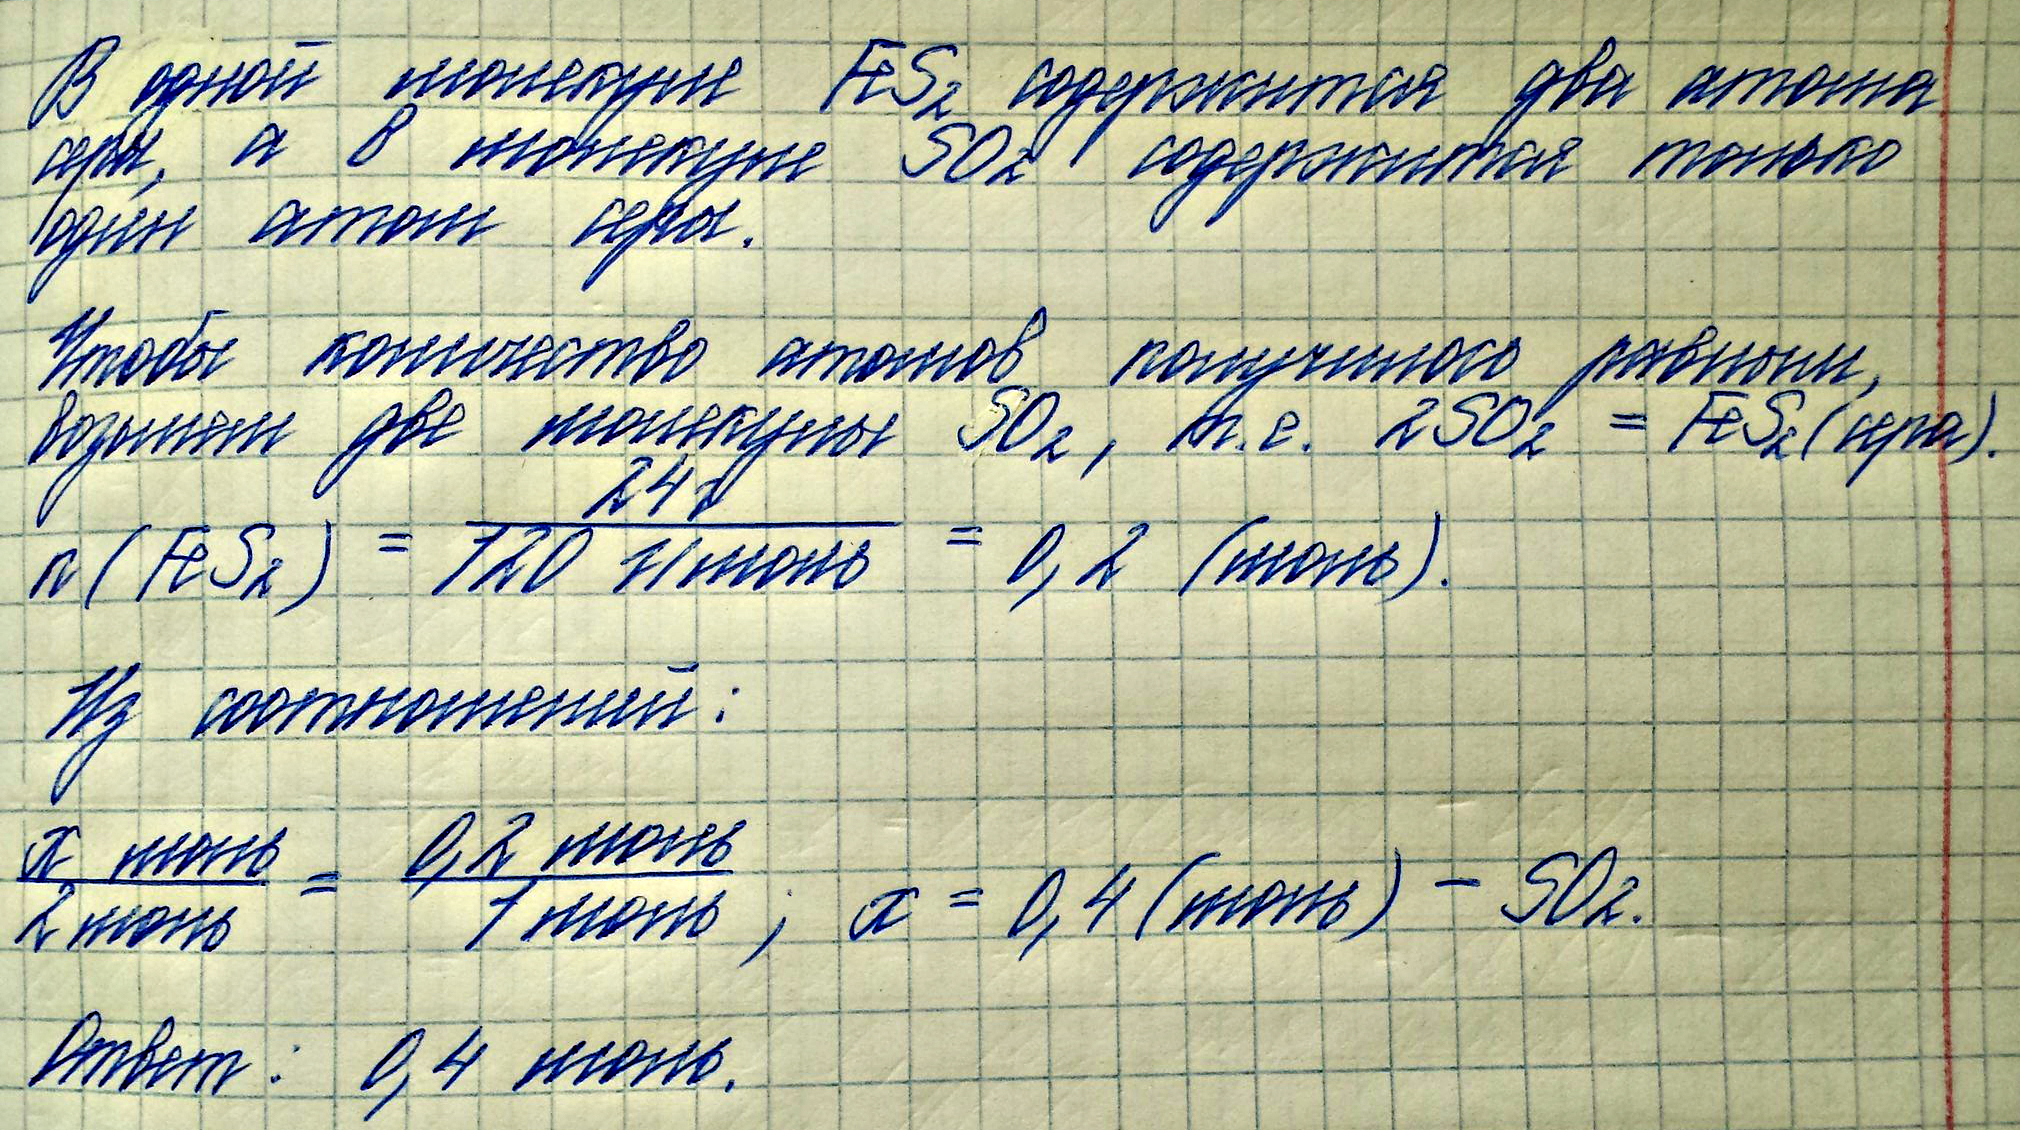 В одной молекуле FeS₂ содержится два атома
серы, а в молекуле SO₂ содержится только
один атом серы.
Чтобы количество атомов получилось равным,
возьмем две молекулы SO₂, т.е. 2SO₂ = FeS₂ (сера).
n(FeS₂) = 24г / 120 г/моль = 0,2 (моль).
Из соотношений:
x моль / 2 моль = 0,2 моль / 1 моль ; x = 0,4 (моль) – SO₂.
Ответ: 0,4 моль.